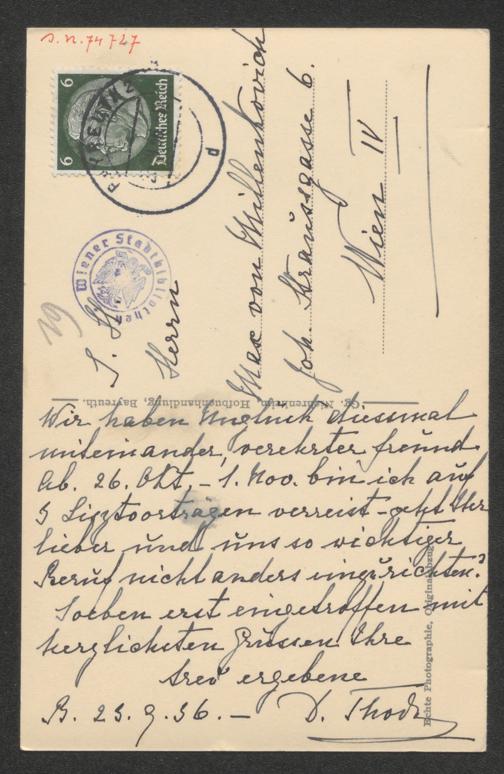 S.N. 74727
6
6
Deutsches Reich
BAYREUTH 2
d
Wiener Stadtbibliothek
S. H.
Herrn
Max von Millenkovich
Joh. Straussgasse 6.
Wien IV
Gg. Niehrenheim, Hofbuchhandlung, Bayreuth.
Wir haben Unglück diessmal
miteinander, verehrter Freund
Ab. 26. Okt. - 1. Nov. bin ich auf
5 Lisztvorträgen verreist - geht Ihr
lieber und uns so wichtiger
Beruf nicht anders einzurichten?
Soeben erst eingetroffen mit
herzlichsten Grüssen Ihre
treu ergebene
B. 23. 9. 36. - D. Thode
Echte Photographie, Originalabzug